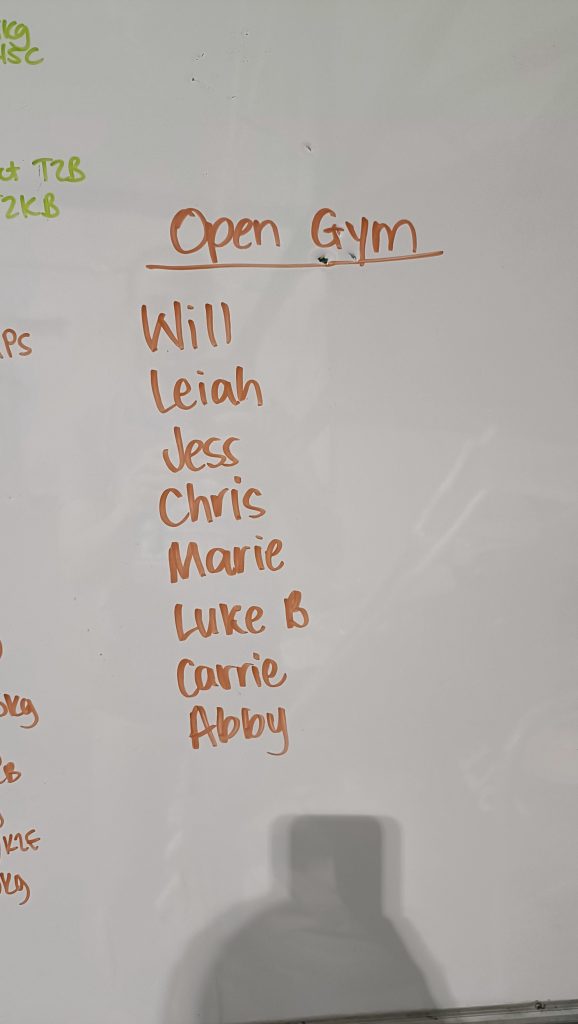 kg
T2B
T2KB
Open Gym
Will
Leiah
PS
Jess
Chris
Marie
Luke B
Carrie
kg
Abby
B
K2E
kg